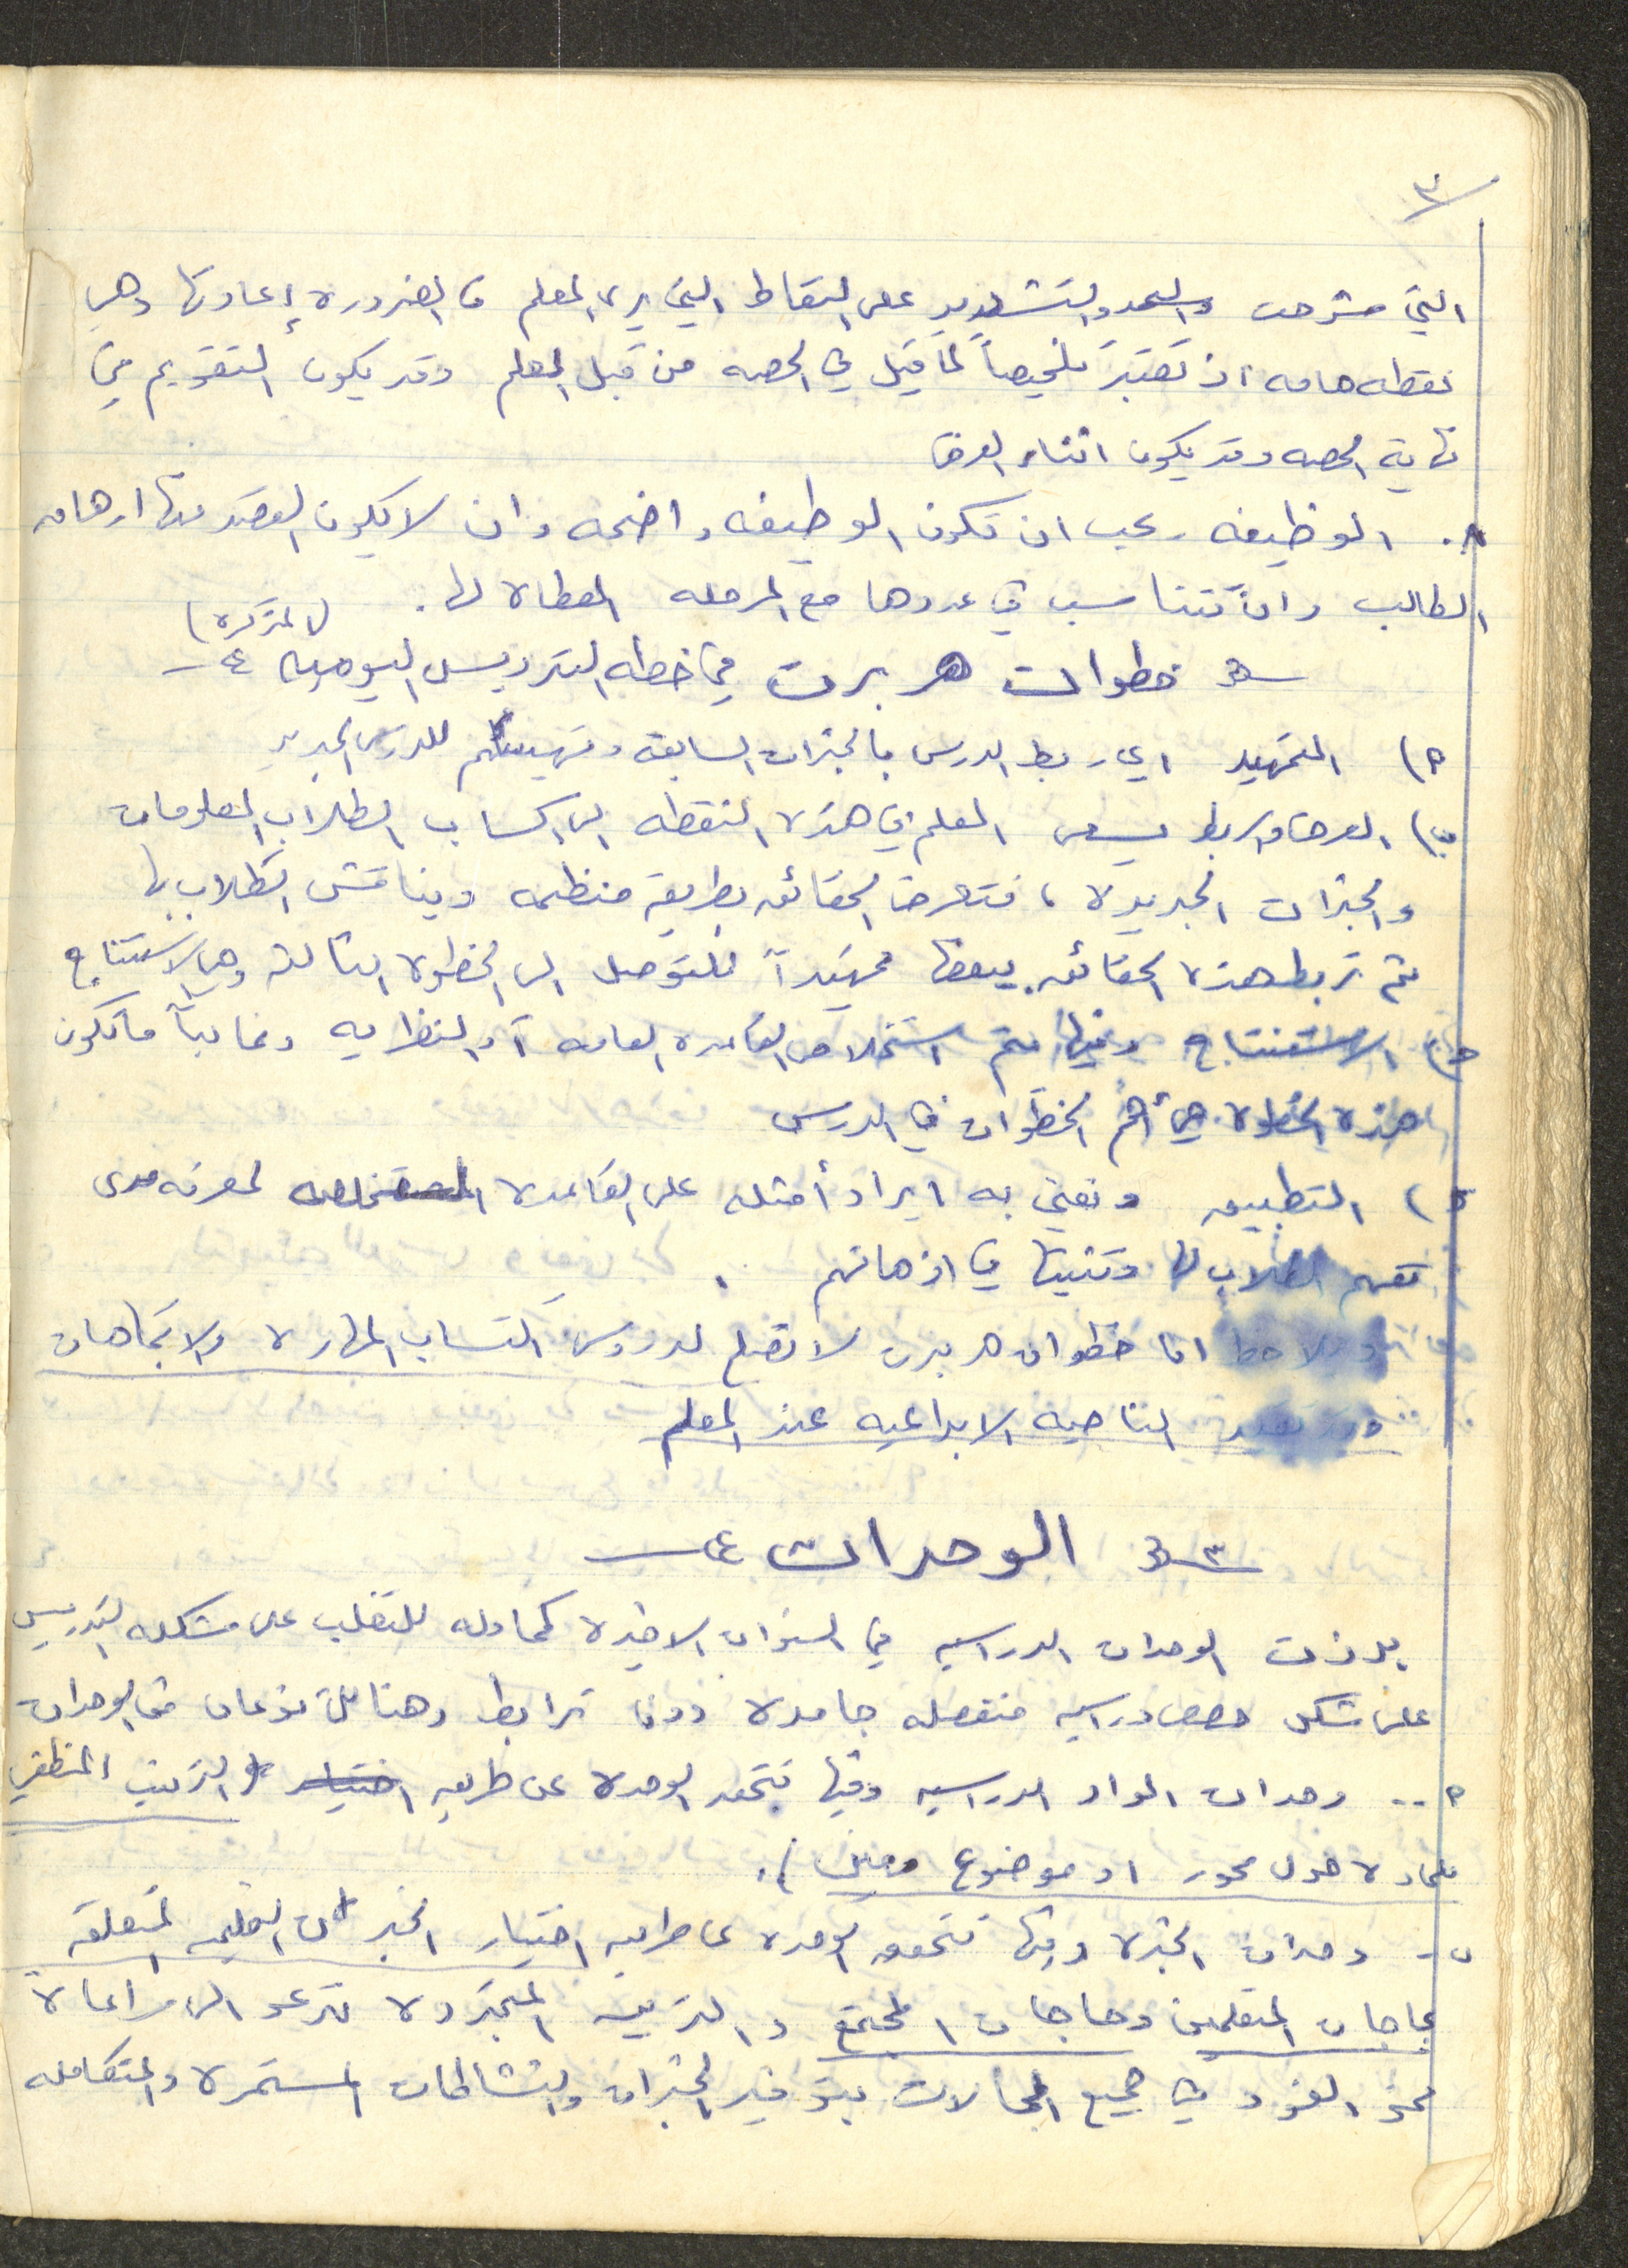 ٣
التي شرحت والتشديد على النقاط التي يرى المعلم من الضروره إعادتها وهي
نقطه هامه اذ تعتبر تلخيصاً لما قيل في الحصه من قبل المعلم وقد يكون التقويم في
نهاية الحصه وقد يكون اثناء العرض
٨. الوظيفه : يجب ان تكون الوظيفه واضحه وان لا يكون القصد منها ارهاق
الطالب وان تتناسب في عددها مع المرحله المعطاه لها.
(المذكره)
خطوات هربرت في خطه التدريس اليوميه
٢) التمهيد اي ربط الدرس بالخبرات السابقة وتهيئتهم للدرس الجديد
ب) العرض والربط يسعى المعلم في هذه النقطه الى اكساب الطلاب المعلومات
والخبرات الجديده ، فتعرض الحقائق بطريقة منظمه ويناقش الطلاب بها
ثم تربط هذه الحقائق ببعضها تمهيداً للتوصل الى الخطوه الثالثه وهي الاستنتاج
ج) الاستنتاج وفيها يتم استخلاص القاعده العامه أو النظريه وغالباً ما تكون
هذه الخطوه هي أهم الخطوات في الدرس
د) التطبيق ونعني به ايراد أمثله على القاعده المستخلصه لمعرفه مدى
تفهم الطلاب لها وتثبيتها في اذهانهم .
ويلاحظ ان خطوات هربرت لا تصلح لدروس اكتساب المهاره والاتجاهات
وقد تقيد الناحيه الابداعيه عند المعلم
الوحدات
برزت الوحدات الدراسيه في السنوات الاخيره كمحاوله للتغلب على مشكله التدريس
على شكل حصص دراسيه منفصله جامده دون ترابط وهنالك نوعان من الوحدات
٢ .. وحدات المواد الدراسيه وفيها تتحقق الوحده عن طريق اختيار (الترتيب المنطقي
للماده حول محور او موضوع معين).
ب- وحدات الخبره وفيها تتحقق الوحده عن طريق اختيار الخبرات التعليميه المتعلقه
بحاجات المتعلمين وحاجات المجتمع و التربيه المتجدده تدعو الى مراعاة
نمو الفرد في جميع المجالات بتوفير الخبرات والنشاطات المستمره والمتكامله